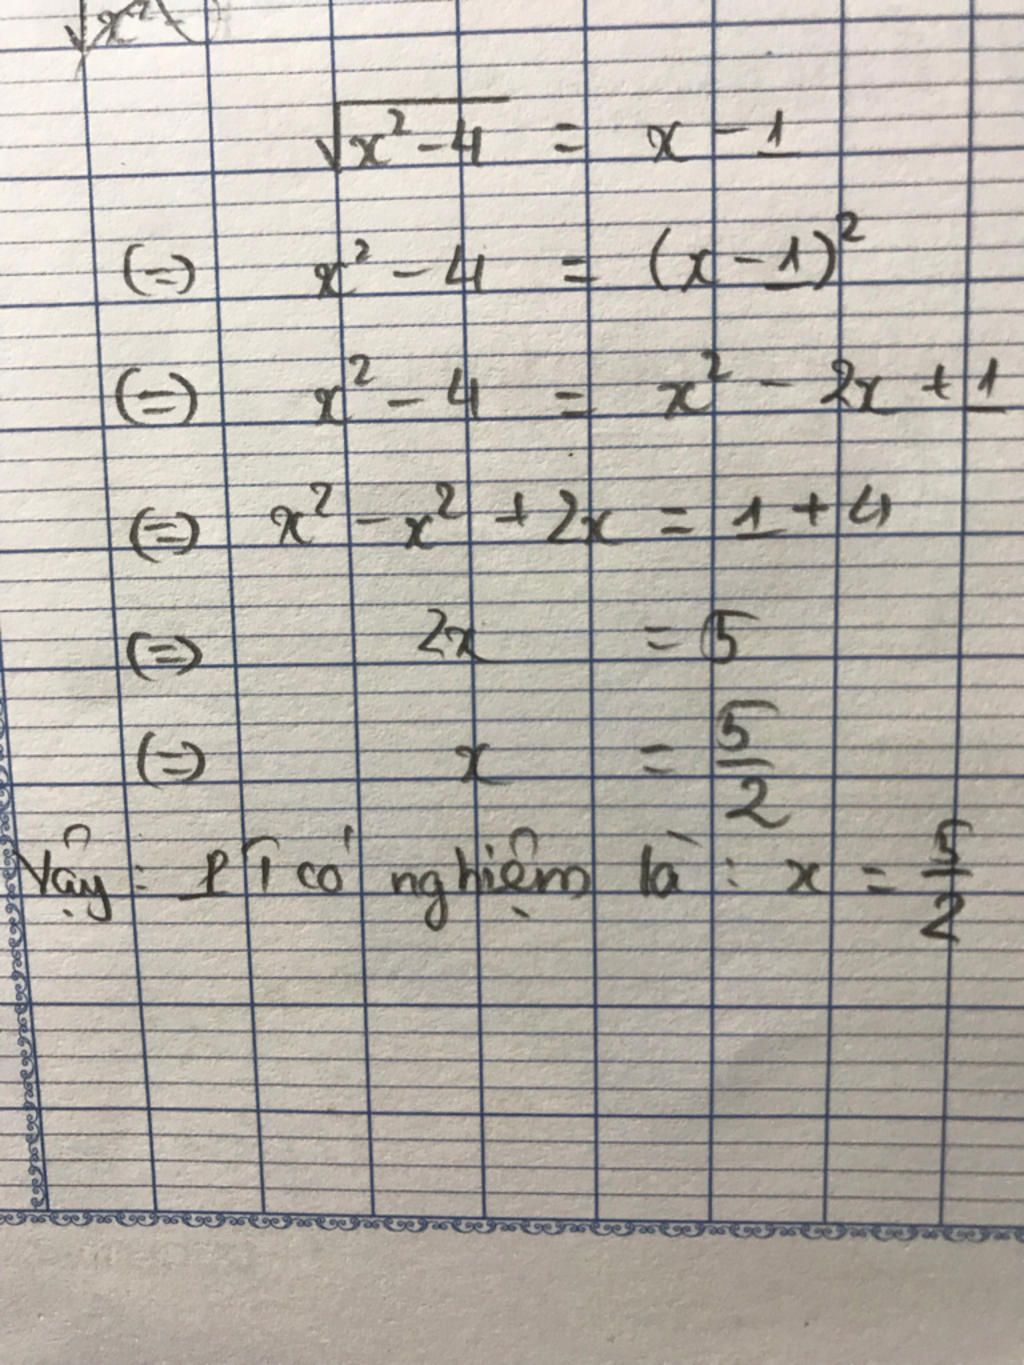 √x²
√x² - 4 = x - 1
(=) x² - 4 = (x - 1)²
(=) x² - 4 = x² - 2x + 1
(=) x² - x² + 2x = 1 + 4
(=) 2x = 5
(=) x = 5/2
Vậy : PT có nghiệm là : x = 5/2